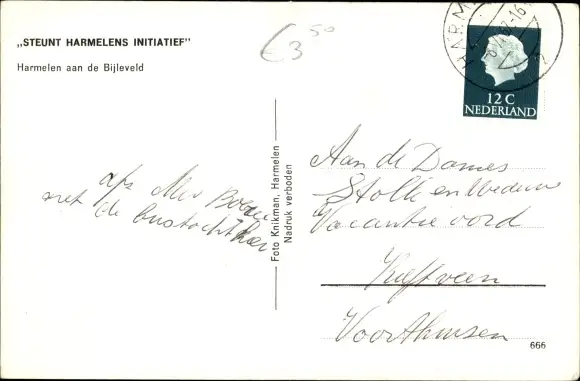 „STEUNT HARMELENS INITIATIEF"
Harmelen aan de Bijleveld
€3 50
HARMEL
12 C
NEDERLAND
afz Mev
met de bustocht
Foto Knikman, Harmelen
Nadruk verboden
Aan de Dames
Stolk en Weduwe
Vacantie oord
Kieftveen
Voorthuisen
666